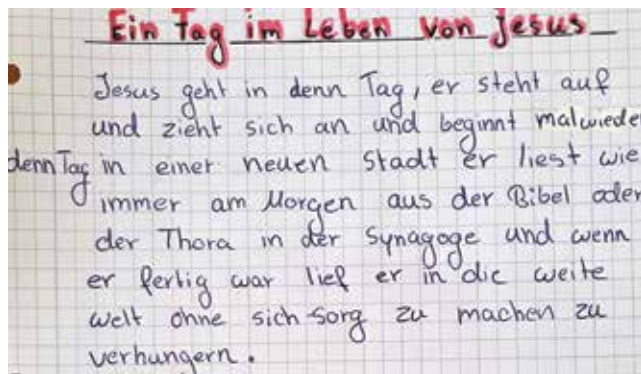 Ein Tag im Leben von Jesus
Jesus geht in denn Tag, er steht auf
und zieht sich an und beginnt malwieder
denn Tag in einer neuen Stadt er liest wie
immer am Morgen aus der Bibel oder
der Thora in der Synagoge und wenn
er fertig war lief er in die weite
welt ohne sich sorg zu machen zu
verhungern.